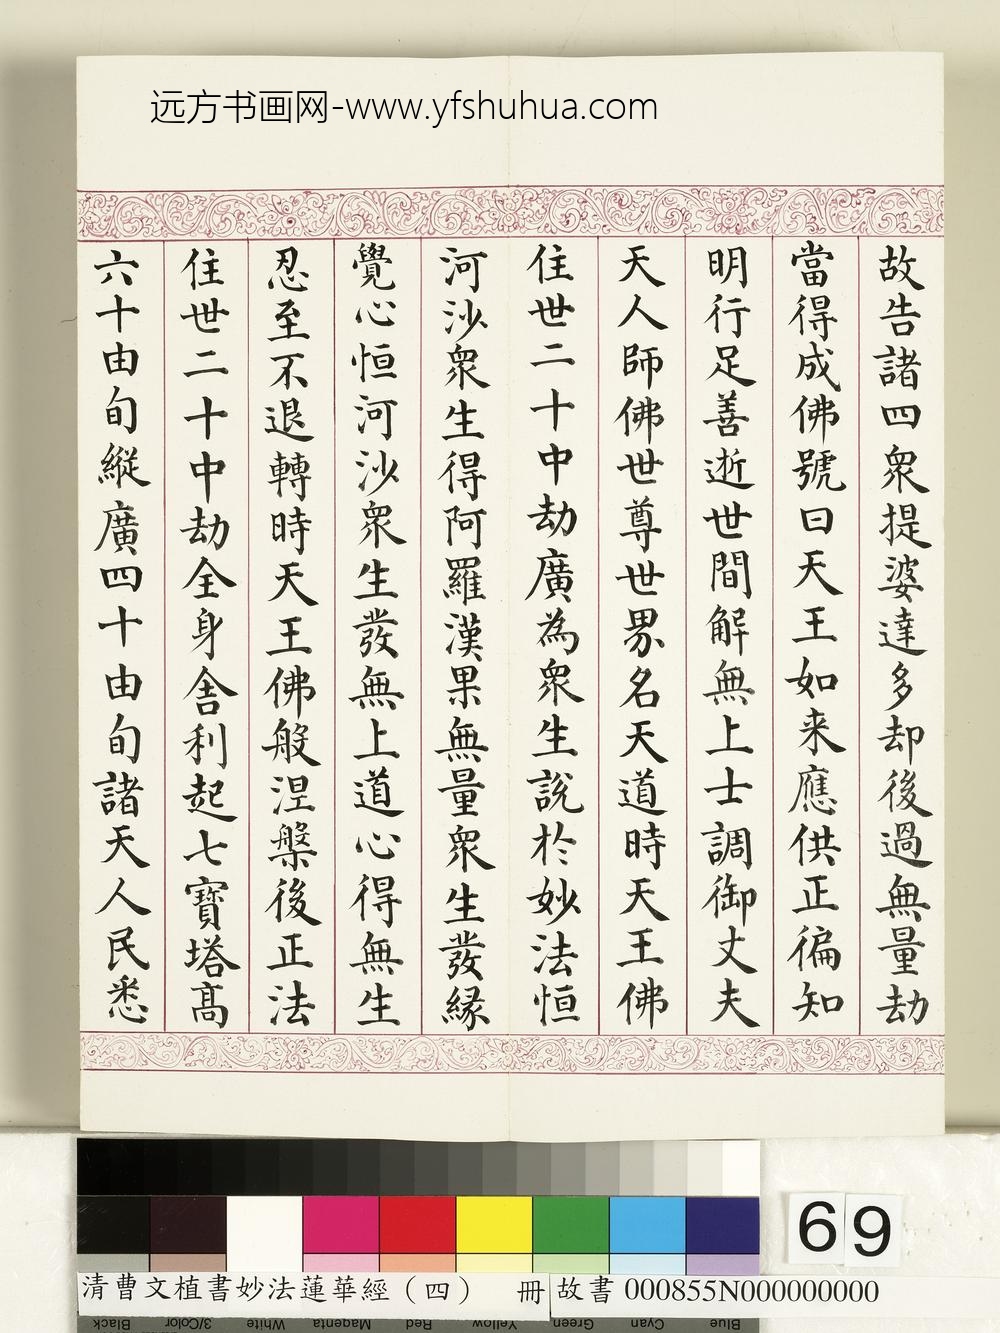 远方书画网-www.yfshuhua.com
故告諸四衆提婆達多却後過無量劫
當得成佛號曰天王如来應供正徧知
明行足善逝世間解無上士調御丈夫
天人師佛世尊世界名天道時天王佛
住世二十中劫廣為衆生說於妙法恒
河沙衆生得阿羅漢果無量衆生發緣
覺心恒河沙衆生發無上道心得無生
忍至不退轉時天王佛般涅槃後正法
住世二十中劫全身舍利起七寶塔髙
六十由旬縱廣四十由旬諸天人民悉
69
清曹文植書妙法蓮華經（四） 冊 故書 000855N000000000
Black 3/Color White Magenta Red Yellow Green Cyan Blue